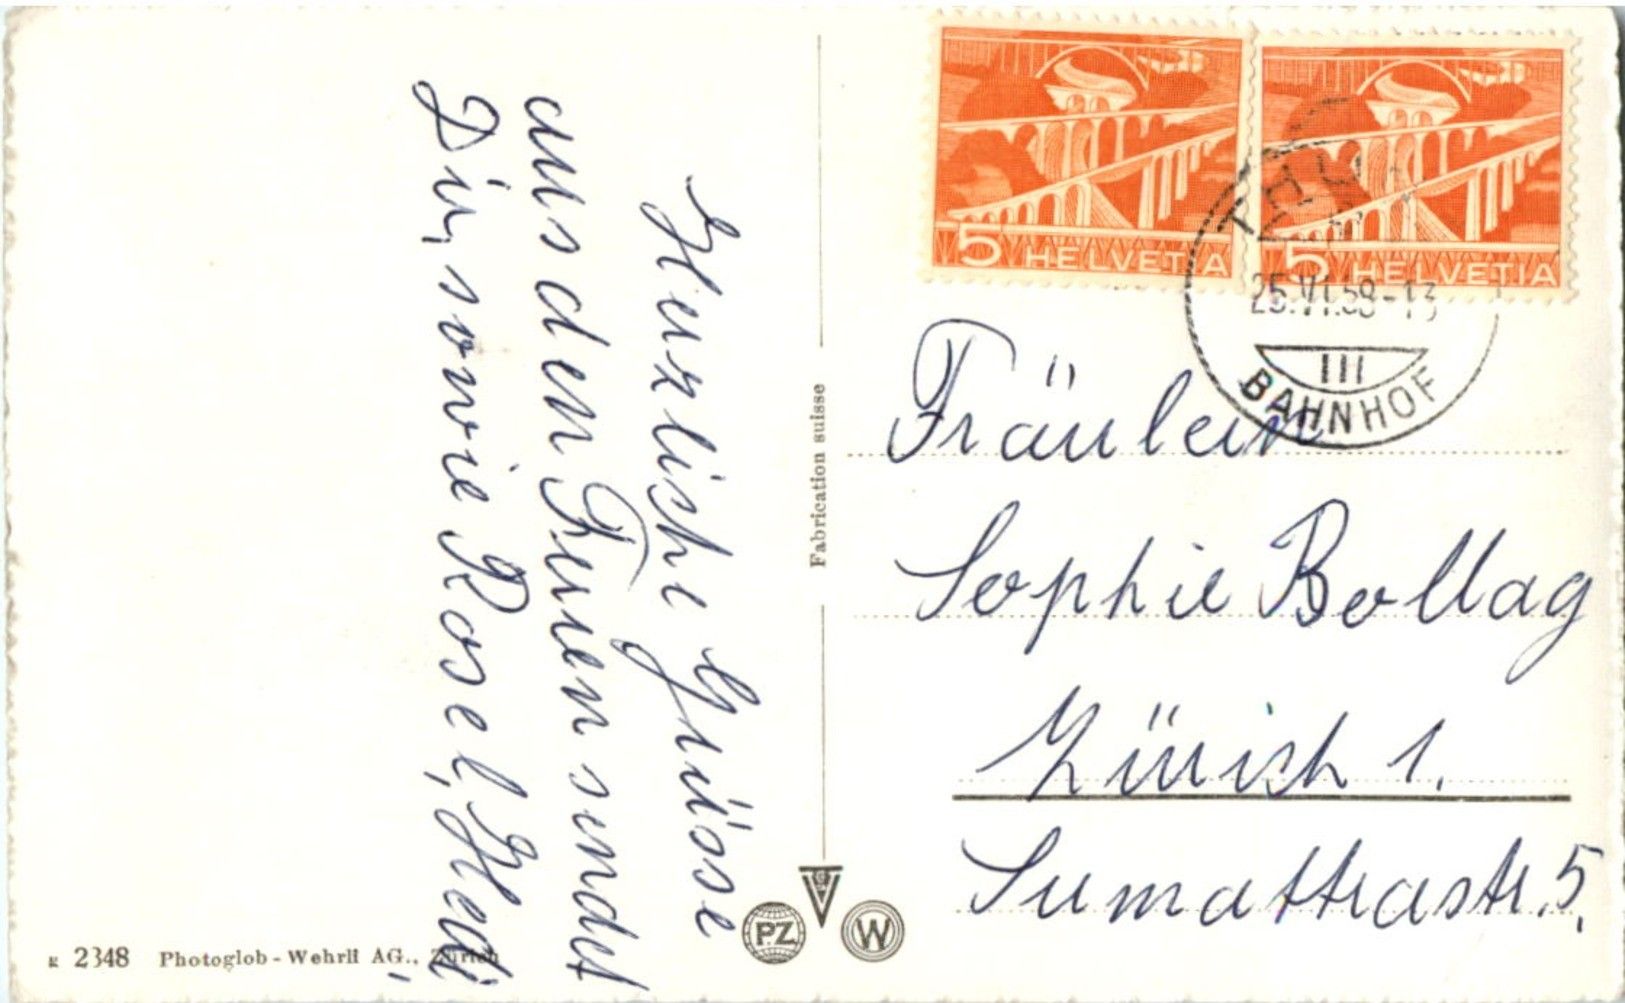 Herzliche Grüsse
aus den Ferien sendet
Dir, sowie Rosel, Hedi
Fabrication suisse
5 HELVETIA
5 HELVETIA
25.VI.58-13
III
BAHNHOF
Fräulein
Sophie Bollag
Zürich 1.
Sumattrastr. 5.
PZ
W
K 2348 Photoglob-Wehrli AG., Zürich